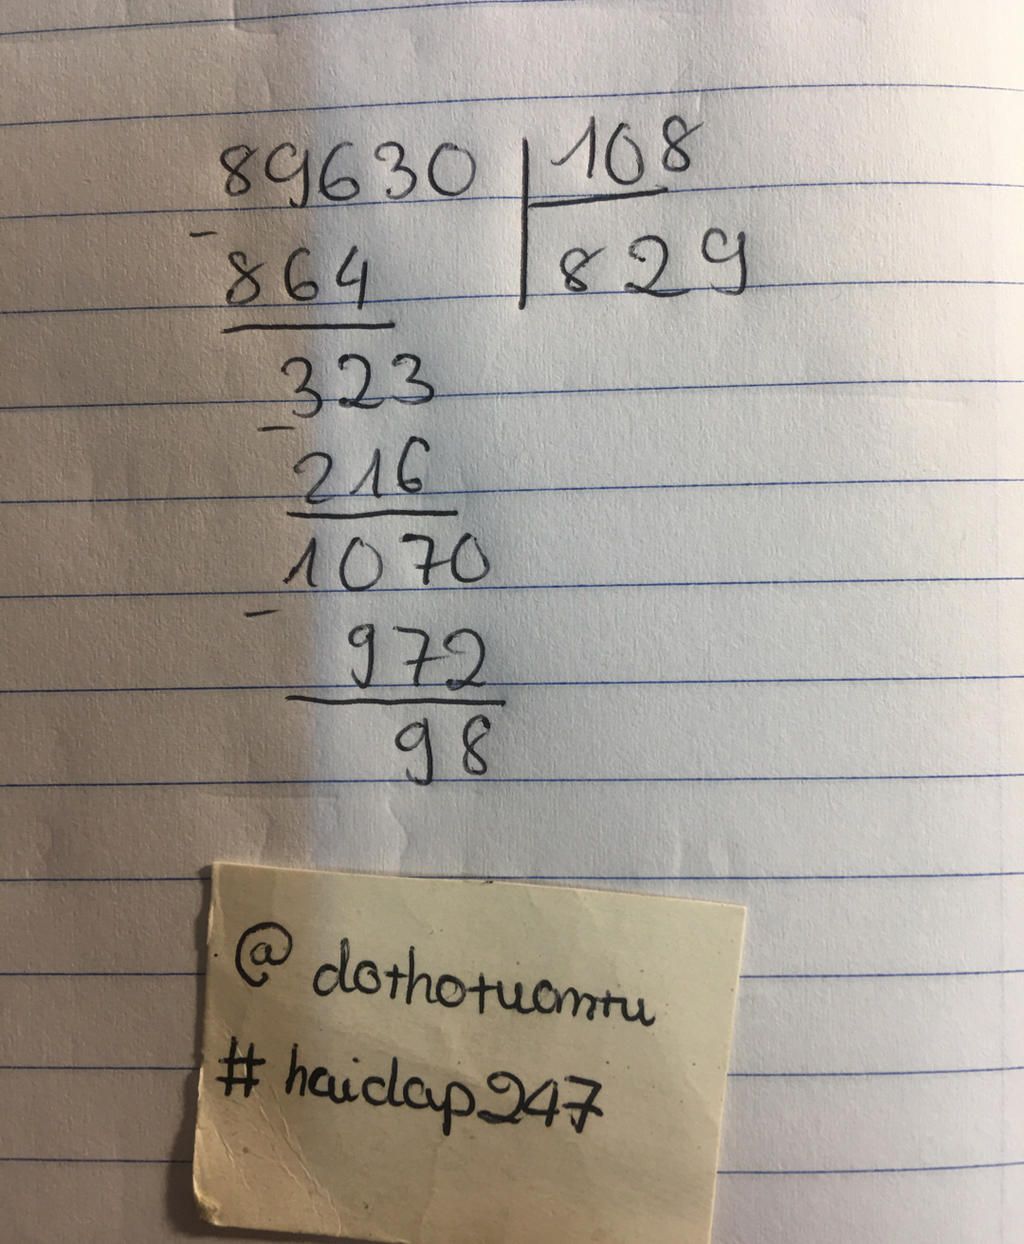 89630 108
- 864 829
323
- 216
1070
- 972
98
@ dothotuantu
# haidap247